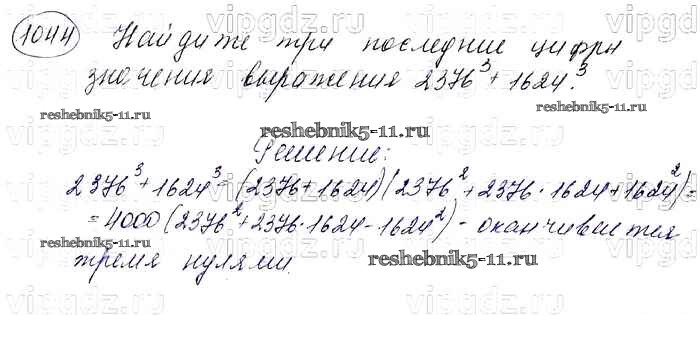 vipgdz.ru vipgdz.ru vipgdz.ru
1044 Найдите три последние цифры
значения выражения 2376³ + 1624³.
reshebnik5-11.ru reshebnik5-11.ru
reshebnik5-11.ru
Решение:
2376³ + 1624³ = (2376 + 1624)(2376² + 2376 · 1624 + 1624²) =
= 4000 (2376² + 2376 · 1624 - 1624²) - оканчивается
reshebnik5-11.ru
тремя нулями. reshebnik5-11.ru
vipgdz.ru vipgdz.ru vipgdz.ru